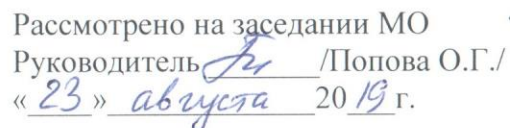 Рассмотрено на заседании МО
Руководитель /Попова О.Г./
«23» августа 2019 г.